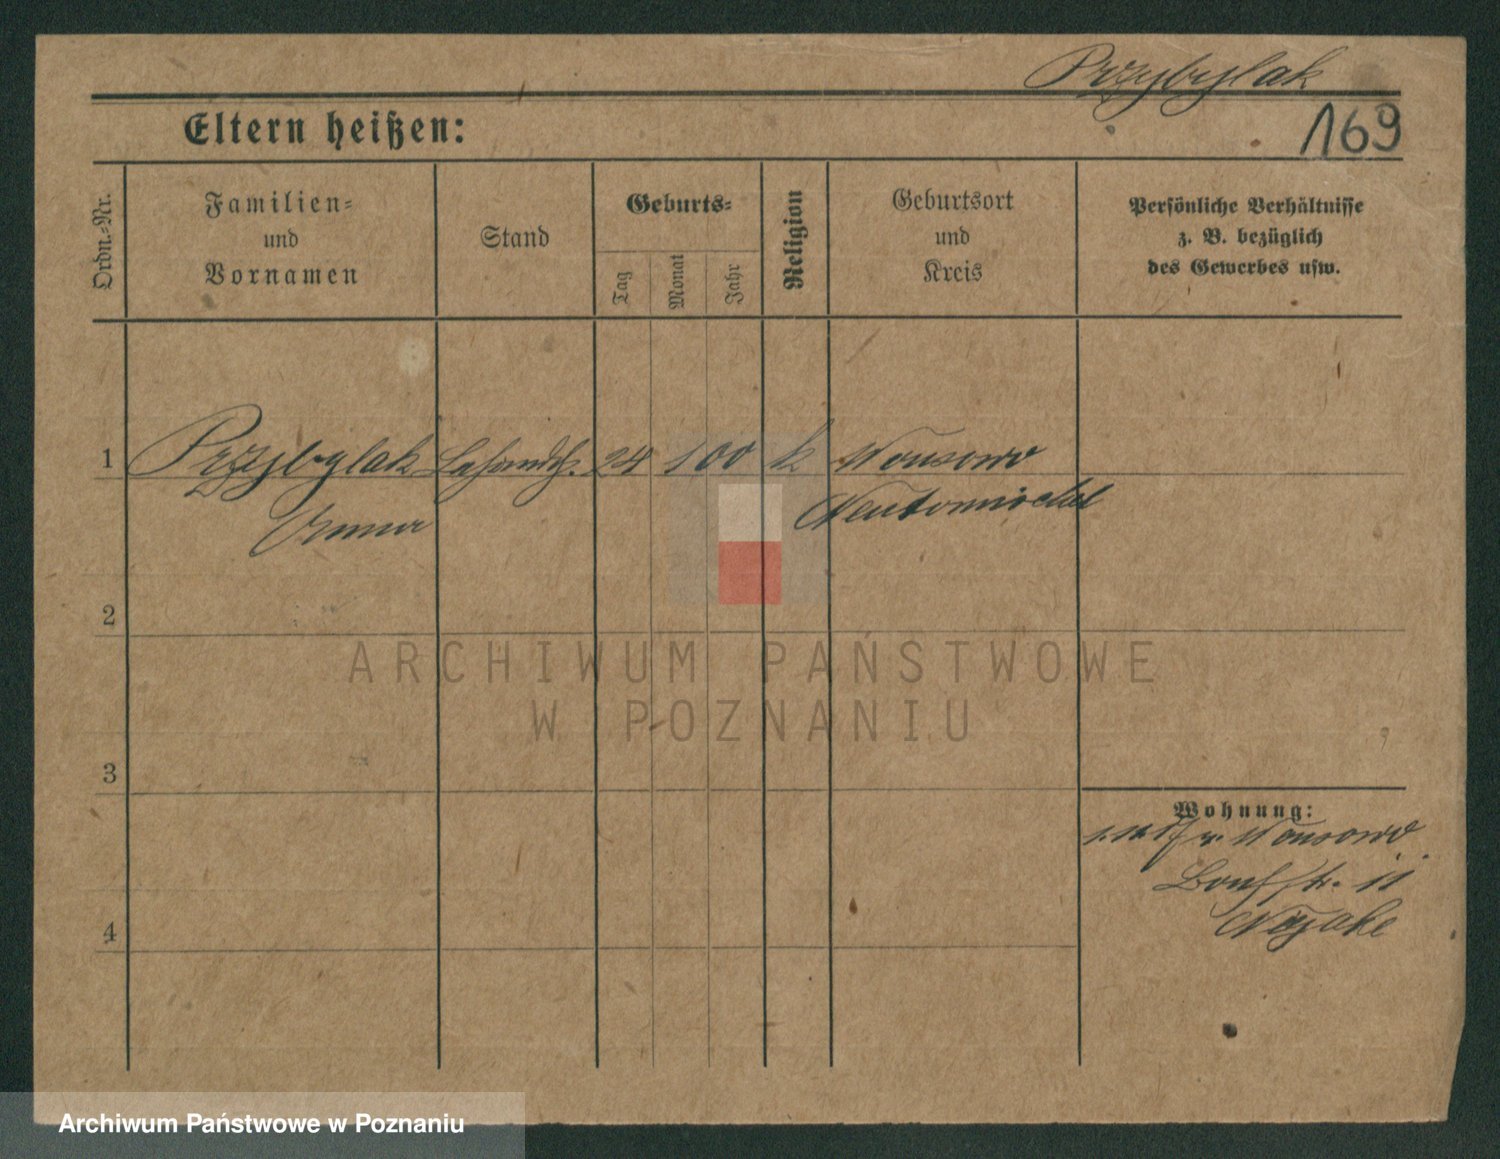 Przybylak
Eltern heißen:
169
Ordn.-Nr.
Familien-
und
Vornamen
Stand
Geburts-
Tag
Monat
Jahr
Religion
Geburtsort
und
Kreis
Persönliche Verhältnisse
z. B. bezüglich
des Gewerbes usw.
1 Przybylak 24 1 00 k Wonsowo
Neutomischel
2
3
4
Wohnung:
Wonsowo
str. 11
ARCHIWUM PAŃSTWOWE
W POZNANIU
Archiwum Państwowe w Poznaniu